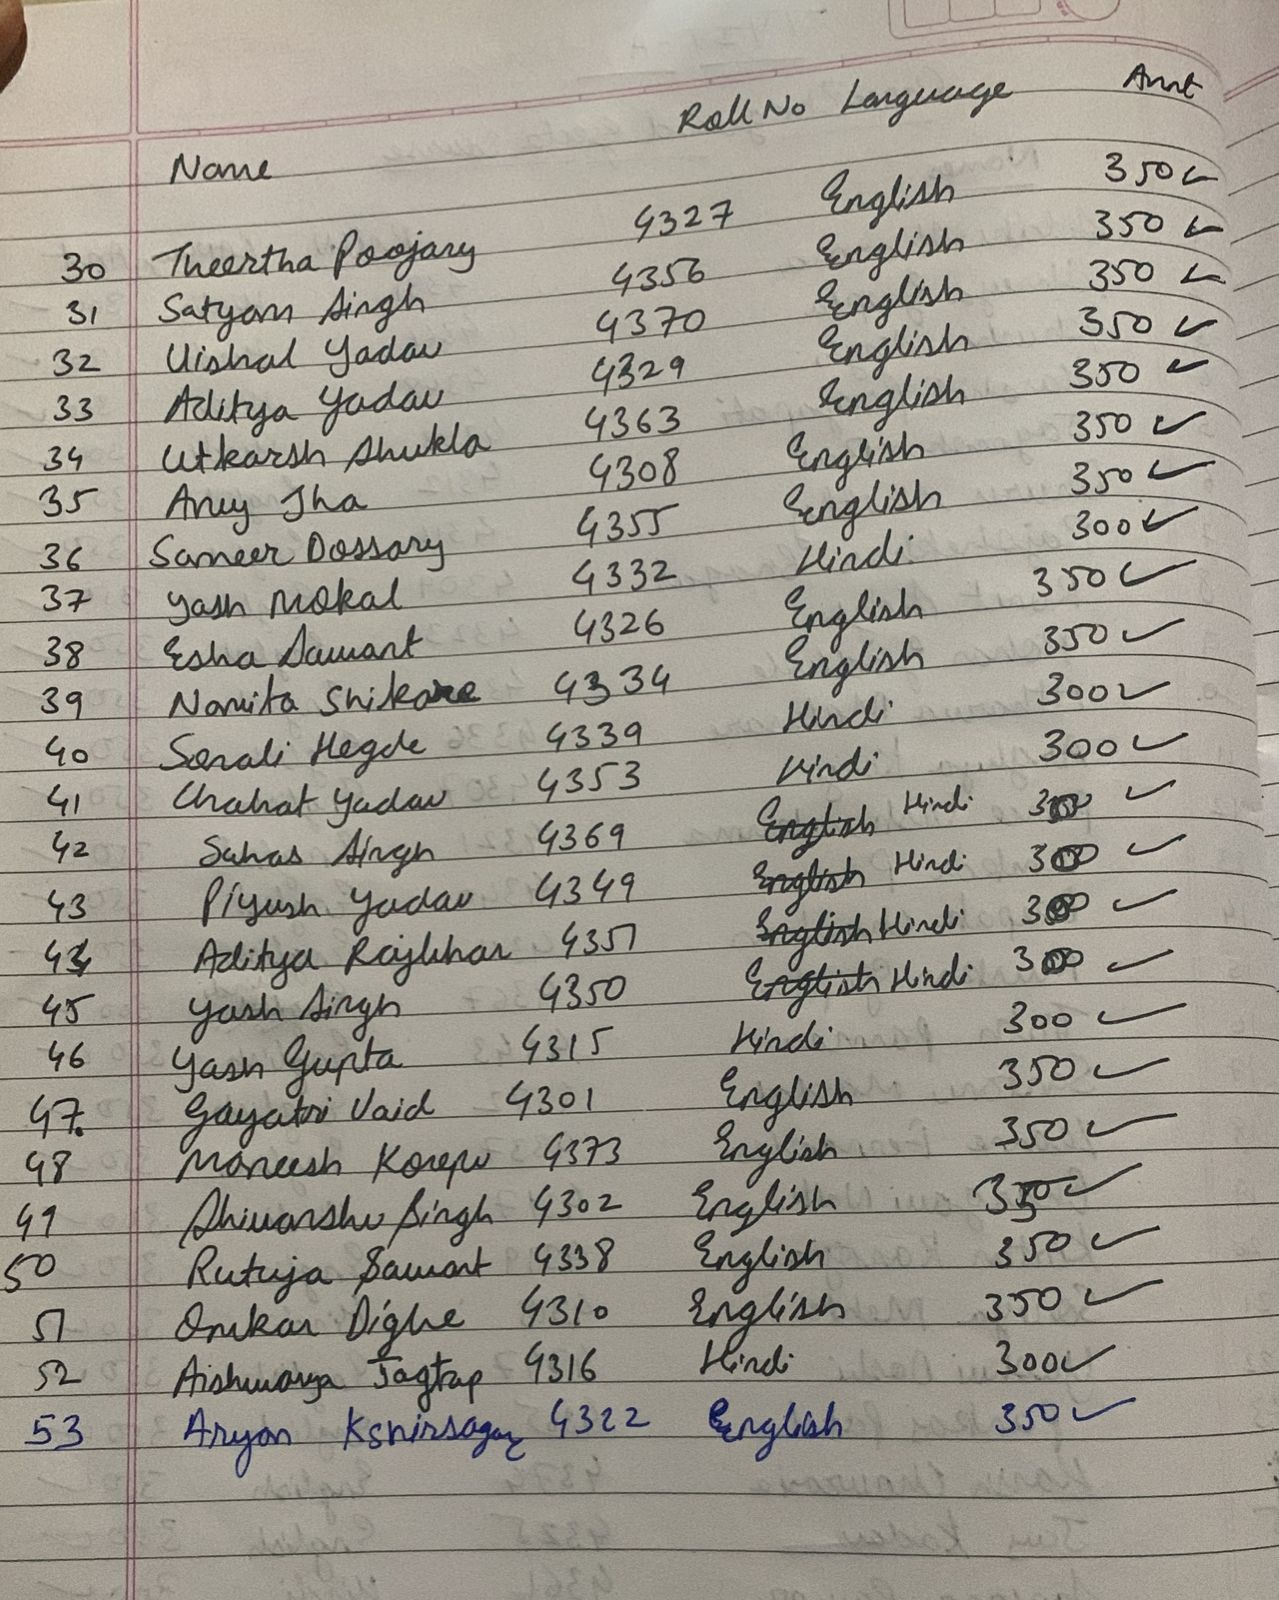 Name Roll No Language Amt
30 Theertha Poojary 4327 English 350 ✓
31 Satyam Singh 4356 English 350 ✓
32 Vishal Yadav 4370 English 350 ✓
33 Aditya Yadav 4329 English 350 ✓
34 Utkarsh Shukla 4363 English 350 ✓
35 Anuj Jha 4308 English 350 ✓
36 Sameer Dossary 4355 English 350 ✓
37 Yash Mokal 4332 Hindi 300 ✓
38 Esha Sawant 4326 English 350 ✓
39 Namita Shikare 4334 English 350 ✓
40 Sonali Hegde 4339 Hindi 300 ✓
41 Chahat Yadav 4353 Hindi 300 ✓
42 Sahas Singh 4369 English Hindi 300 ✓
43 Piyush Yadav 4349 English Hindi 300 ✓
44 Aditya Rajbhar 4351 English Hindi 300 ✓
45 Yash Singh 4350 English Hindi 300 ✓
46 Yash Gupta 4315 Hindi 300 ✓
47. Gayatri Vaid 4301 English 350 ✓
48 Maneesh 4373 English 350 ✓
49 Shivanshu Singh 4302 English 350 ✓
50 Rutuja Sawant 4338 English 350 ✓
51 Omkar Dighe 4310 English 350 ✓
52 Aishwarya Jagtap 4316 Hindi 300 ✓
53 Aryan Kshirsagar 4322 English 350 ✓